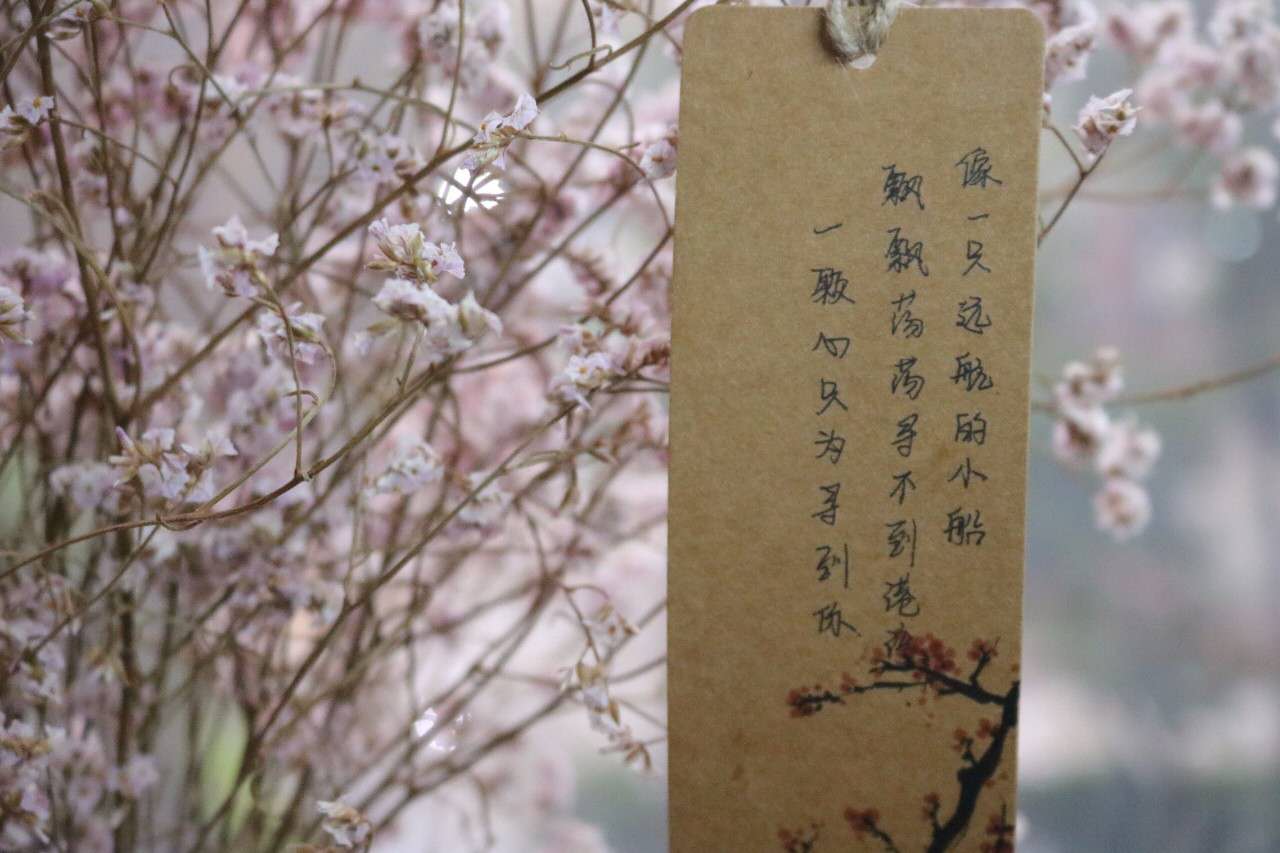 像一只远航的小船
飘飘荡荡寻不到港湾
一颗心只为寻到你